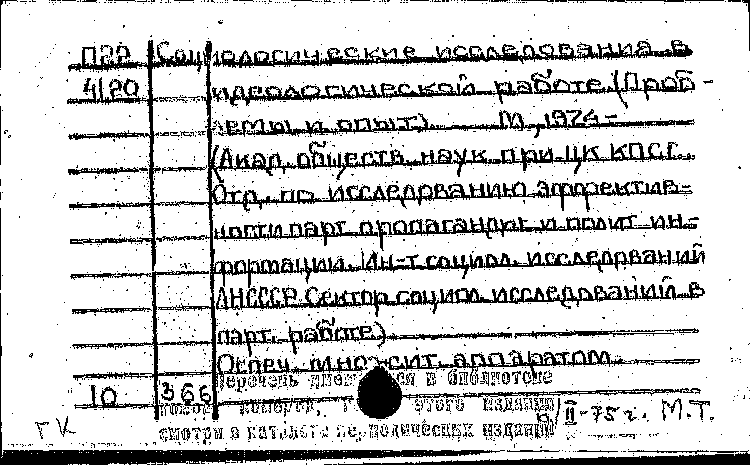 П22 Социологические исследования в
4120 идеологической работе. (Проб-
лемы и опыт). М., 1974-
(Акад. обществ. наук при ЦК КПСС.
Отд. по исследованию эффектив-
ности парт. пропаганды и полит. ин-
формации. Ин-т социол. исследований
АНСССР. Сектор социол. исследований в
парт. работе)
Отпеч. множит. аппаратом.
10 366 Перечень имеющихся в библиотеке
номеров, этого издания
смотри в каталоге периодических изданий
6/II-75 г. М.Т.
ГК